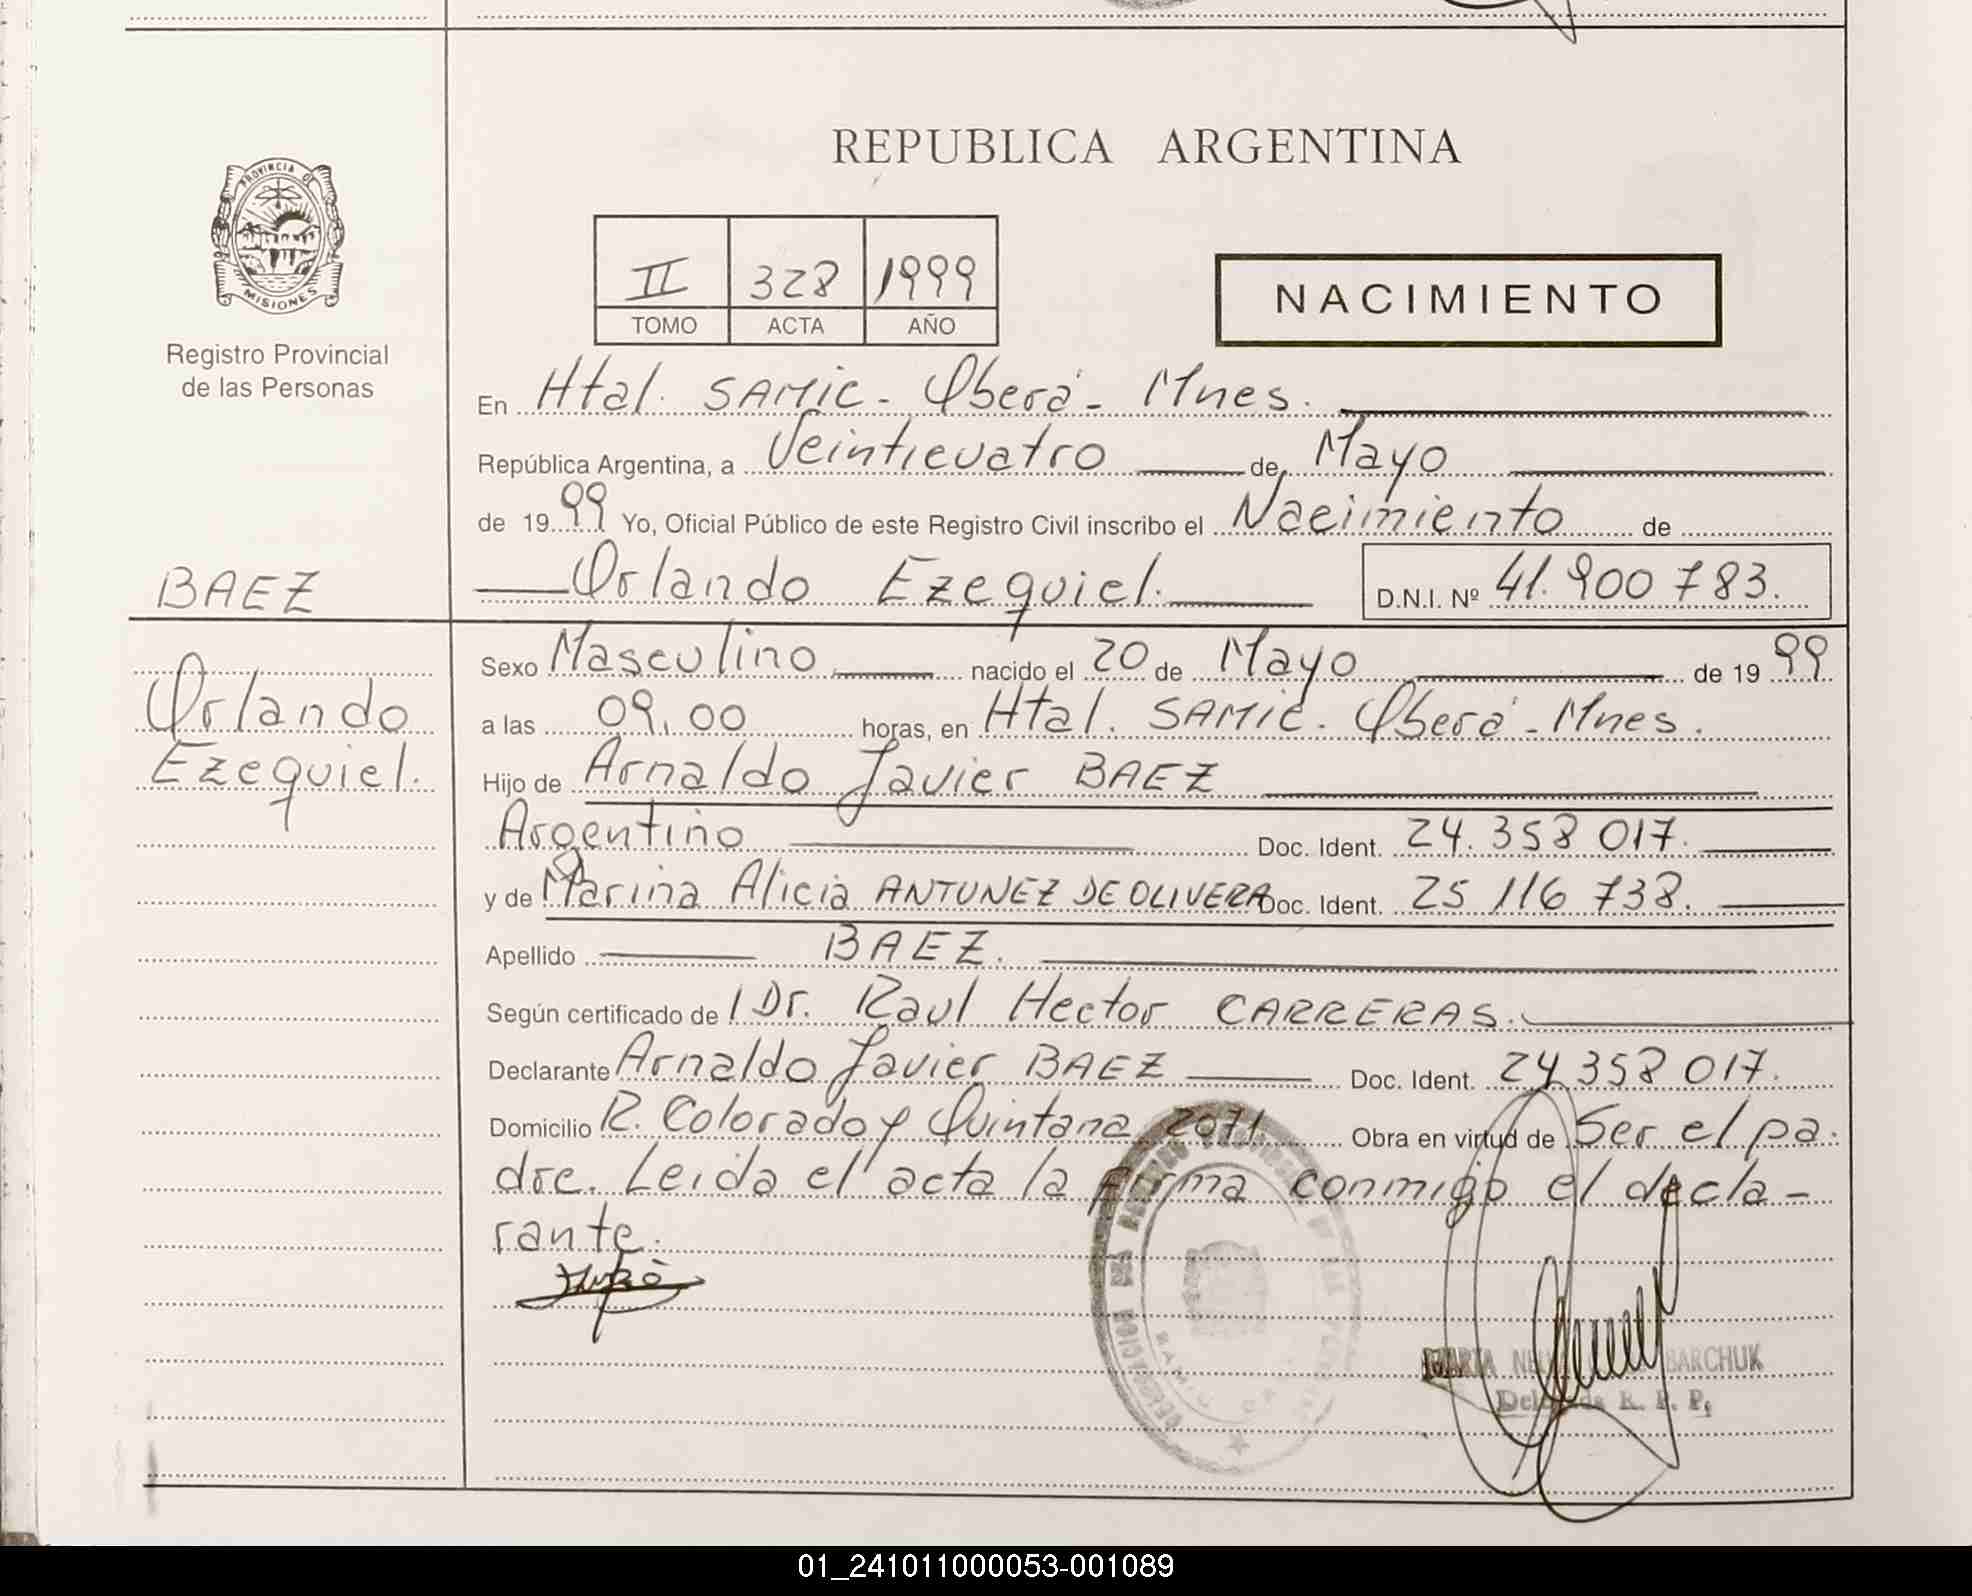 REPUBLICA ARGENTINA
PROVINCIA DE
MISIONES
Registro Provincial
de las Personas
II 328 1999
TOMO ACTA AÑO
NACIMIENTO
En Htal. SAMIC - Oberá - Mnes.
República Argentina, a Veinticuatro de Mayo
de 1999 Yo, Oficial Público de este Registro Civil inscribo el Nacimiento de
Orlando Ezequiel. D.N.I. Nº 41.900 783.
BAEZ
Orlando
Ezequiel.
Sexo Masculino nacido el 20 de Mayo de 1999
a las 09.00 horas, en Htal. SAMIC. Oberá - Mnes.
Hijo de Arnaldo Javier BAEZ
Argentino Doc. Ident. 24.358 017.
y de Marina Alicia ANTUNEZ DE OLIVERA Doc. Ident. 25 116 738.
Apellido BAEZ.
Según certificado de Dr. Raul Hector CARRERAS.
Declarante Arnaldo Javier BAEZ Doc. Ident. 24.358 017.
Domicilio R. Colorado y Quintana 2071 Obra en virtud de Ser el pa-
dre. Leida el acta la firma conmigo el decla-
rante.
BARCHUK
R. P. P.
01_241011000053-001089